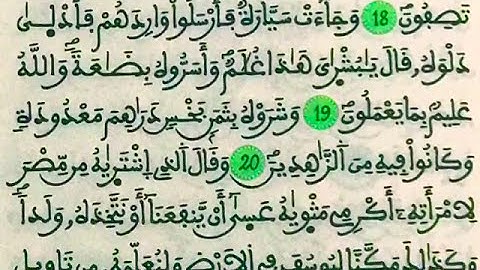 تَصِفُونَ 18 وَجَآءَتْ سَيَّارَةٞ فَأَرْسَلُواْ وَارِدَهُمْ فَأَدْلَىٰ
دَلْوَهُۥ قَالَ يَٰبُشْرَٰىَ هَٰذَا غُلَٰمٞ وَأَسَرُّوهُ بِضَٰعَةٗ وَاللَّهُ
عَلِيمُۢ بِمَا يَعْمَلُونَ 19 وَشَرَوْهُ بِثَمَنِۢ بَخْسٖ دَرَٰهِمَ مَعْدُودَةٖ
وَكَانُواْ فِيهِ مِنَ اَلزَّٰهِدِينَ 20 وَقَالَ اَلذِے اِشْتَرَيٰهُ مِن مِّصْرَ
لِامْرَأَتِهِۦٓ أَكْرِمِے مَثْوَيٰهُ عَسَىٰٓ أَنْ يَّنفَعَنَآ أَوْ نَتَّخِذَهُۥ وَلَداٗ
وَكَذَٰلِكَ مَكَّنَّا لِيُوسُفَ فِے اِلَارْضِ وَلِنُعَلِّمَهُۥ مِن تَاوِيلِ